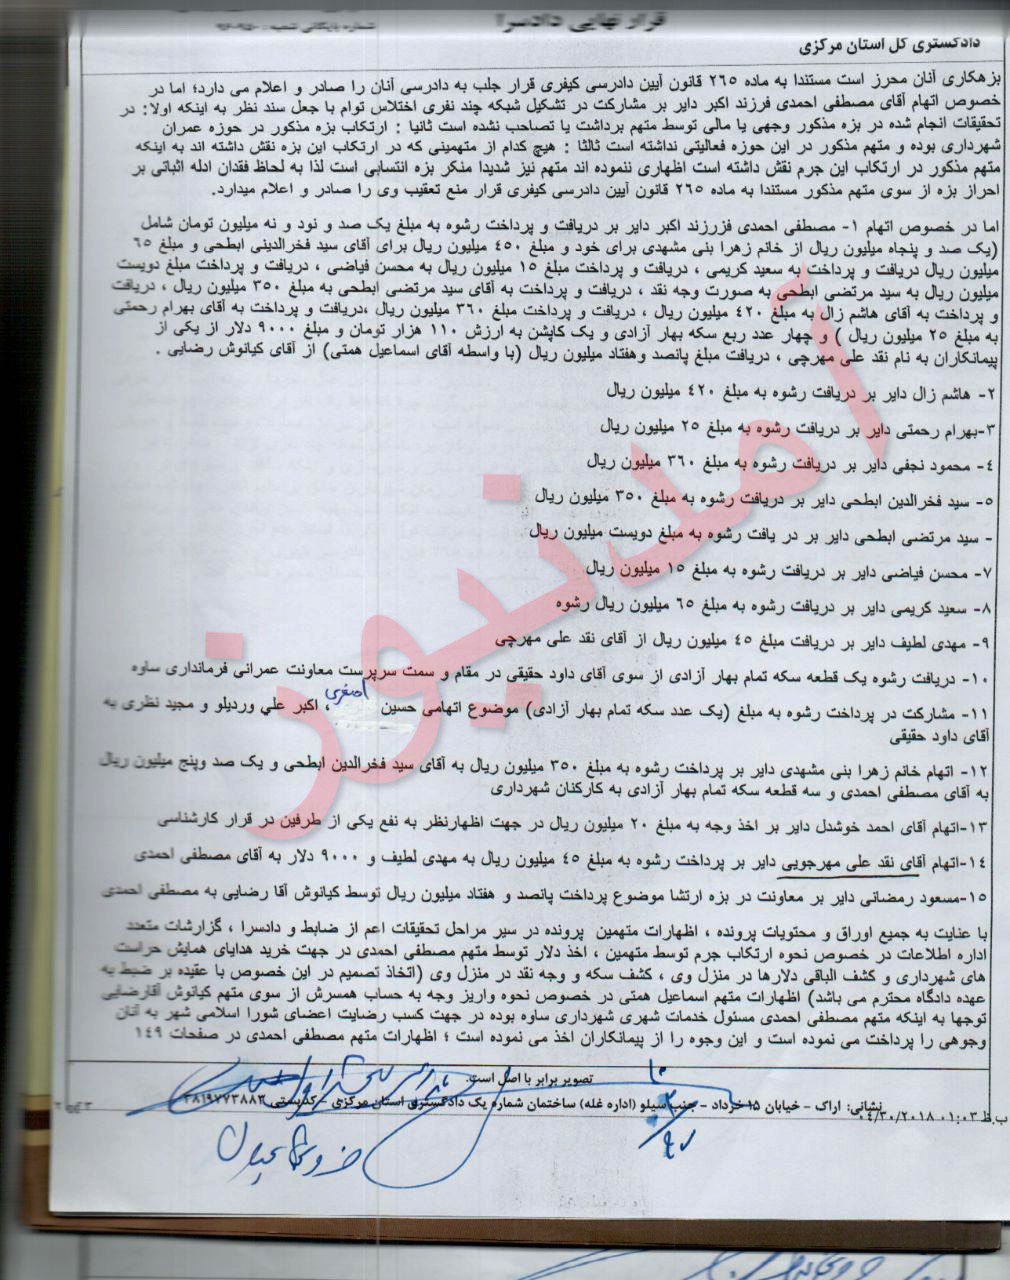 قرار نهایی دادسرا
شماره بایگانی شعبه :
دادگستری کل استان مرکزی
بزهکاری آنان محرز است مستندا به ماده ۲٦٥ قانون آیین دادرسی کیفری قرار جلب به دادرسی آنان را صادر و اعلام می دارد؛ اما در
خصوص اتهام آقای مصطفی احمدی فرزند اکبر دایر بر مشارکت در تشکیل شبکه چند نفری اختلاس توام با جعل سند نظر به اینکه اولا: در
تحقیقات انجام شده در بزه مذکور وجهی یا مالی توسط متهم برداشت یا تصاحب نشده است ثانیا : ارتکاب بزه مذکور در حوزه عمران
شهرداری بوده و متهم مذکور در این حوزه فعالیتی نداشته است ثالثا : هیچ کدام از متهمینی که در ارتکاب این بزه نقش داشته اند به اینکه
متهم مذکور در ارتکاب این جرم نقش داشته است اظهاری ننموده اند متهم نیز شدیدا منکر بزه انتسابی است لذا به لحاظ فقدان ادله اثباتی بر
احراز بزه از سوی متهم مذکور مستندا به ماده ۲٦٥ قانون آیین دادرسی کیفری قرار منع تعقیب وی را صادر و اعلام میدارد.
اما در خصوص اتهام ۱- مصطفی احمدی فزرزند اکبر دایر بر دریافت و پرداخت رشوه به مبلغ یک صد و نود و نه میلیون تومان شامل
(یک صد و پنجاه میلیون ریال از خانم زهرا بنی مشهدی برای خود و مبلغ ٤٥۰ میلیون ریال برای آقای سید فخرالدینی ابطحی و مبلغ ٦٥
میلیون ریال دریافت و پرداخت به سعید کریمی ، دریافت و پرداخت مبلغ ۱٥ میلیون ریال به محسن فیاضی ، دریافت و پرداخت مبلغ دویست
میلیون ریال به سید مرتضی ابطحی به صورت وجه نقد ، دریافت و پرداخت به آقای سید مرتضی ابطحی به مبلغ ۳٥۰ میلیون ریال ، دریافت
و پرداخت به آقای هاشم زال به مبلغ ٤۲۰ میلیون ریال ، دریافت و پرداخت مبلغ ۳٦۰ میلیون ریال ،دریافت و پرداخت به آقای بهرام رحمتی
به مبلغ ۲٥ میلیون ریال ) و چهار عدد ربع سکه بهار آزادی و یک کاپشن به ارزش ۱۱۰ هزار تومان و مبلغ ۹۰۰۰ دلار از یکی از
پیمانکاران به نام نقد علی مهرچی ، دریافت مبلغ پانصد وهفتاد میلیون ریال (با واسطه آقای اسماعیل همتی) از آقای کیانوش رضایی .
۲- هاشم زال دایر بر دریافت رشوه به مبلغ ٤۲۰ میلیون ریال
۳-بهرام رحمتی دایر بر دریافت رشوه به مبلغ ۲٥ میلیون ریال
٤- محمود نجفی دایر بر دریافت رشوه به مبلغ ۳٦۰ میلیون ریال
٥- سید فخرالدین ابطحی دایر بر دریافت رشوه به مبلغ ۳٥۰ میلیون ریال
- سید مرتضی ابطحی دایر بر در یافت رشوه به مبلغ دویست میلیون ریال
۷- محسن فیاضی دایر بر دریافت رشوه به مبلغ ۱٥ میلیون ریال
۸- سعید کریمی دایر بر دریافت رشوه به مبلغ ٦٥ میلیون ریال رشوه
۹- مهدی لطیف دایر بر دریافت مبلغ ٤٥ میلیون ریال از آقای نقد علی مهرچی
۱۰- دریافت رشوه یک قطعه سکه تمام بهار آزادی از سوی آقای داود حقیقی در مقام و سمت سرپرست معاونت عمرانی فرمانداری ساوه
۱۱- مشارکت در پرداخت رشوه به مبلغ (یک عدد سکه تمام بهار آزادی) موضوع اتهامی حسین اصغری ، اکبر علي وردیلو و مجید نظری به
آقای داود حقیقی
۱۲- اتهام خانم زهرا بنی مشهدی دایر بر پرداخت رشوه به مبلغ ۳٥۰ میلیون ریال به آقای سید فخرالدین ابطحی و یک صد وپنج میلیون ریال
به آقای مصطفی احمدی و سه قطعه سکه تمام بهار آزادی به کارکنان شهرداری
۱۳-اتهام آقای احمد خوشدل دایر بر اخذ وجه به مبلغ ۲۰ میلیون ریال در جهت اظهارنظر به نفع یکی از طرفین در قرار کارشناسی
۱٤-اتهام آقای نقد علی مهرجویی دایر بر پرداخت رشوه به مبلغ ٤٥ میلیون ریال به مهدی لطیف و ۹۰۰۰ دلار به آقای مصطفی احمدی
۱٥-مسعود رمضانی دایر بر معاونت در بزه ارتشا موضوع پرداخت پانصد و هفتاد میلیون ریال توسط کیانوش آقا رضایی به مصطفی احمدی
با عنایت به جمیع اوراق و محتویات پرونده ، اظهارات متهمین پرونده در سیر مراحل تحقیقات اعم از ضابط و دادسرا ، گزارشات متعدد
اداره اطلاعات در خصوص نحوه ارتکاب جرم توسط متهمین ، اخذ دلار توسط متهم مصطفی احمدی در جهت خرید هدایای همایش حراست
های شهرداری و کشف الباقی دلارها در منزل وی ، کشف سکه و وجه نقد در منزل وی (اتخاذ تصمیم در این خصوص با عقیده بر ضبط به
عهده دادگاه محترم می باشد) اظهارات متهم اسماعیل همتی در خصوص نحوه واریز وجه به حساب همسرش از سوی متهم کیانوش آقارضایی
توجها به اینکه متهم مصطفی احمدی مسئول خدمات شهری شهرداری ساوه بوده در جهت کسب رضایت اعضای شورا اسلامی شهر به آنان
وجوهی را پرداخت می نموده است و این وجوه را از پیمانکاران اخذ می نموده است ؛ اظهارات متهم مصطفی احمدی در صفحات ۱٤۹
تصویر برابر با اصل است.
نشانی: اراک - خیابان ۱٥خرداد - جنب سیلو (اداره غله) ساختمان شماره یک دادگستری استان مرکزی - کدپستی ۳۸۱۹۷۷۳۸۸۳
ب.ظ ۰۱:۰۳ ۰٤/۳۰/۲۰۱۸
آمدنیوز